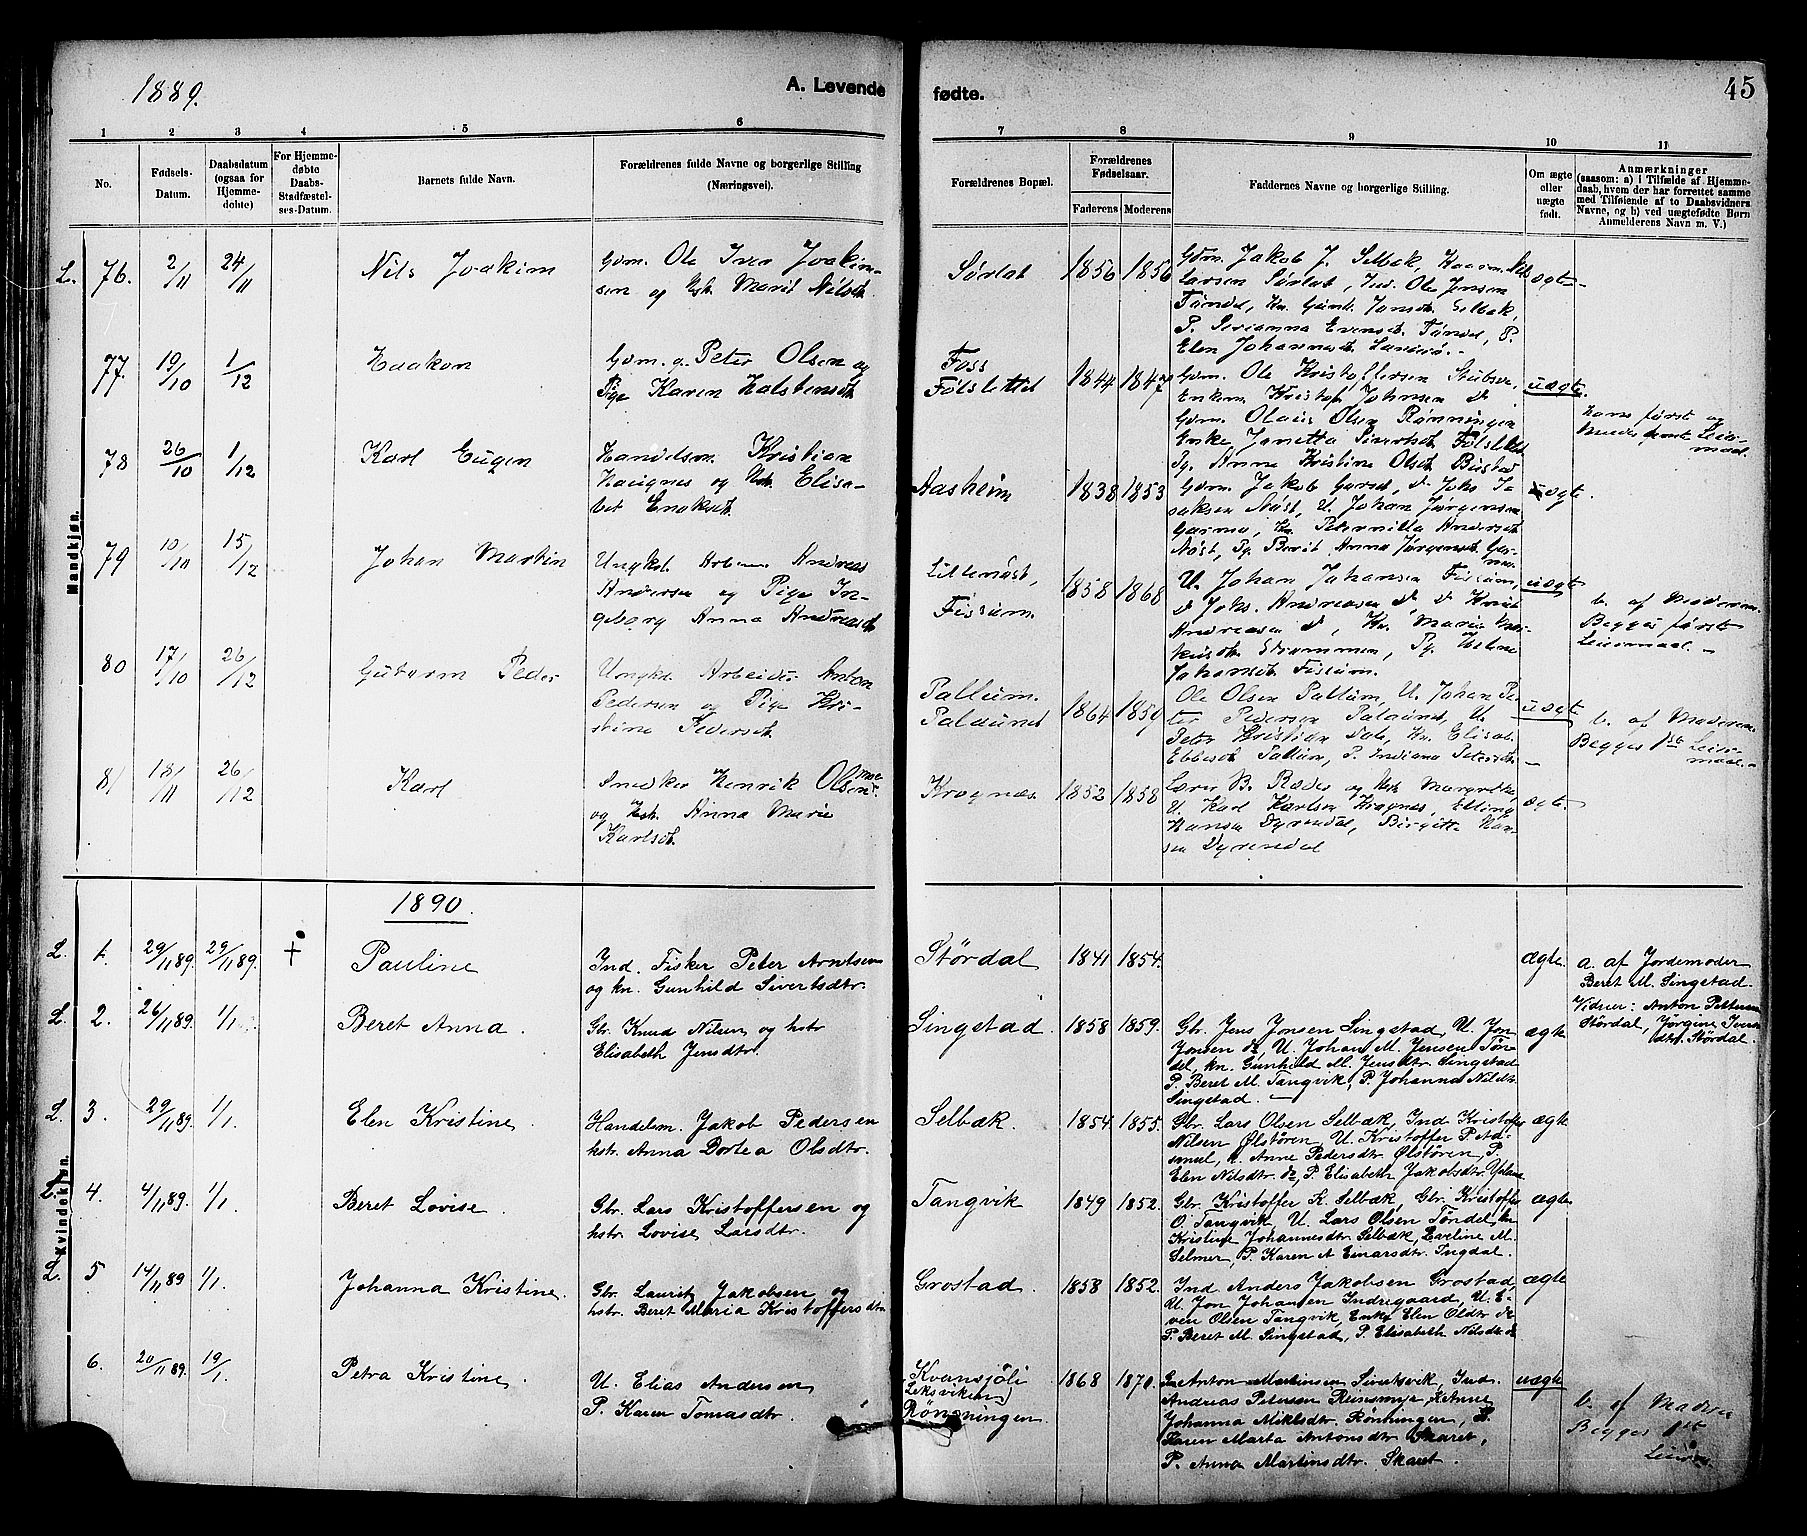 1889.
A. Levende
fødte.
45
1 2 3 4 5 6 7 8 9 10 11
No.
Fødsels-
Datum.
Daabsdatum
(ogsaa for
Hjemme-
døbte)
For Hjemme-
døbte
Daabs-
Stadfæstel-
ses-Datum.
Barnets fulde Navn.
Forældrenes fulde Navne og borgerlige Stilling
(Næringsvei).
Forældrenes Bopæl.
Forældrenes
Fødselsaar.
Faderens Moderens
Faddernes Navne og borgerlige Stilling.
Om ægte
eller
uægte
født.
Anmærkninger
(saasom: a) i Tilfælde af Hjemme-
daab, hvem der har forrettet samme
med Tilføiende af to Daabsvidners
Navne, og b) ved uægtefødte Børn
Anmelderens Navn m. V.)
Mandkjøn.
L. 76. 2/11 24/11 Nils Joakim
Gdm. Ole Iver Joakim-
sen og Hst. Marit Nilsdt.
Sørlat 1856 1856
Gdm. Jakob J. Selbæk, Nils
Larsen Sørlat, Ind. Ole Jensen
Tøndel, Kn. Gunh. Jonsdt. Selbæk,
P. Evensdt. Tøndel, P.
Elen Johannesdt.
ægte
77. 19/10 1/12 Haakon
Gdm. g. Peter Olsen og
Pige Karen Halstensdt.
Foss
Følslettet 1844 1847
Gdm. Ole Kristoffersen Stubsve,
Enkem. Kristof. Johnsen d
Gdm. Olaus Olsen Rønningen
Enke Janetta Sivertsdt. Følslettet
Pg. Anna Kristine Olsdt. Bustad
uægte
Hans første og
Leier-
maal.
78 26/10 1/12 Karl Eugen
Handelsm. Kristian
Haugnes og Hst. Elisa-
bet Enoksdt.
Aasheim 1838 1853
Gdm. Jakob Garset, d Johs I-
saksen Nøst, U. Johan Jørgensen
Garnes, Kn. Peternilla Andersdt.
Nøst, Pg. Berit Anna Jørgensdt. Gar-
nes
ægte
79 10/10 15/12 Johan Martin
Ungkl. Arb. Andreas
Andersen og Pige In-
geborg Anna Andreasdt.
Lillenøst,
Fissum. 1858 1868
U. Johan Johansen Fissum,
d Johs. Andreasen d, d Knut
Andreasen d, Kn. Maria Mar-
kusdt. Strømmen, Pg. Helene
Johansdt. Fissum.
uægte
b. af Moderen.
Begges første
Leiermaal.
80 17/10 26/12 Guttorm Peder
Ungkl. Arbeider Anton
Pedersen og Pige Kri-
stine Pedersdt.
Pallum.
Palsundt 1864 1859
Ole Olsen Pallum, U. Johan Pe-
ter Pedersen Palsundt, U.
Peter Kristian Dol, Kn. Elisab.
Ebbesdt. Pallum, P. Indiana Petersdt.
uægte
b. af Moderen
Begges 1ste Leier-
maal.
81 18/11 26/12 Karl
Snedker Henrik Olsen
og Hst. Anna Marie
Karlsdt.
Kragnæs 1852 1858
Lærer B. Ræder og Hst. Margrethe,
U. Karl Karlsen Kragnes, Elling
Hansen Dyrendal, Birgitte Han-
sen Dyrendal
ægte.
1890.
Kvindekjøn.
L. 1. 29/11 89. 29/11 89. † Pauline
Ind. Fisker Peter Arntsen
og kn. Gunhild Sivertsdtr.
Størdal 1841 1854.
ægte.
a. af Jordemoder
Beret M. Singstad.
Vidner: Anton Pettersen
Størdal, Jørgine Ivers
dtr. Størdal.
L. 2. 26/11 89. 1/1 Beret Anna.
Gbr. Knud Nilsen og hstr
Elisabeth Jensdtr.
Singstad. 1858 1859.
Gbr. Jens Jonsen Singstad, U. Jon
Jonsen do U. Johan M. Jensen Tøn-
del, kn. Gunhild M. Jensdtr Singstad
P. Beret M. Tangvik, P. Johanna Nilsdtr.
Singstad.
ægte
L. 3. 29/11 89. 1/1. Elen Kristine.
Handelsm. Jakob Pedersen
hstr. Anna Dortea Olsdtr.
Selbæk. 1854 1855.
Gbr. Lars Olsen Selbæk, Ind Kristoffer
Nilsen Ølstøren, U. Kristoffer Peter
Anne Pedersdtr. Ølstøren, P.
Elen Nilsdtr do, P. Elisabeth Jakobsdtr.
ægte
L. 4. 4/11 89. 1/1 Beret Lovise.
Gbr. Lars Kristoffersen og
hstr. Lovise Larsdtr.
Tangvik 1849 1852.
Gbr. Kristoffer K. Selbæk, Gbr. Kristoffer
O. Tangvik, U. Lars Olsen Tøndel, kn
Kristine Johannesdtr Selbæk, Eveline M.
Selmer, P. Karen A Einarsdtr. Ingdal.
ægte
L. 5 14/11 89 1/1. Johanna Kristine.
Gbr. Laurits Jakobsen og
hstr. Beret Maria Kristoffersdtr.
Grostad. 1858 1852.
Ind Anders Jakobsen Grostad,
U. Jon Johansen Indregaard, U. E-
ven Olsen Tangvik, Enke Elen Olsdtr. do
P. Beret M. Singstad, P. Elisabeth Nilsdtr do
ægte
6. 20/11 89. 19/1. Petra Kristine.
U. Elias Andersen
P. Karen Tomasdtr.
Kvansjøli
(Leksviken)
Rønningen. 1868 1870.
Anton Martinsen Sivertsvik, Ind.
Andreas Petersen Reinsmyr,
Johanna Mikalsdtr. Rønningen, P.
Karen Marta Antonsdtr Skaret,
P. Anna Martinsdtr. Skaret.
uægte
b. af Moderen
Begges 1st
Leierm.